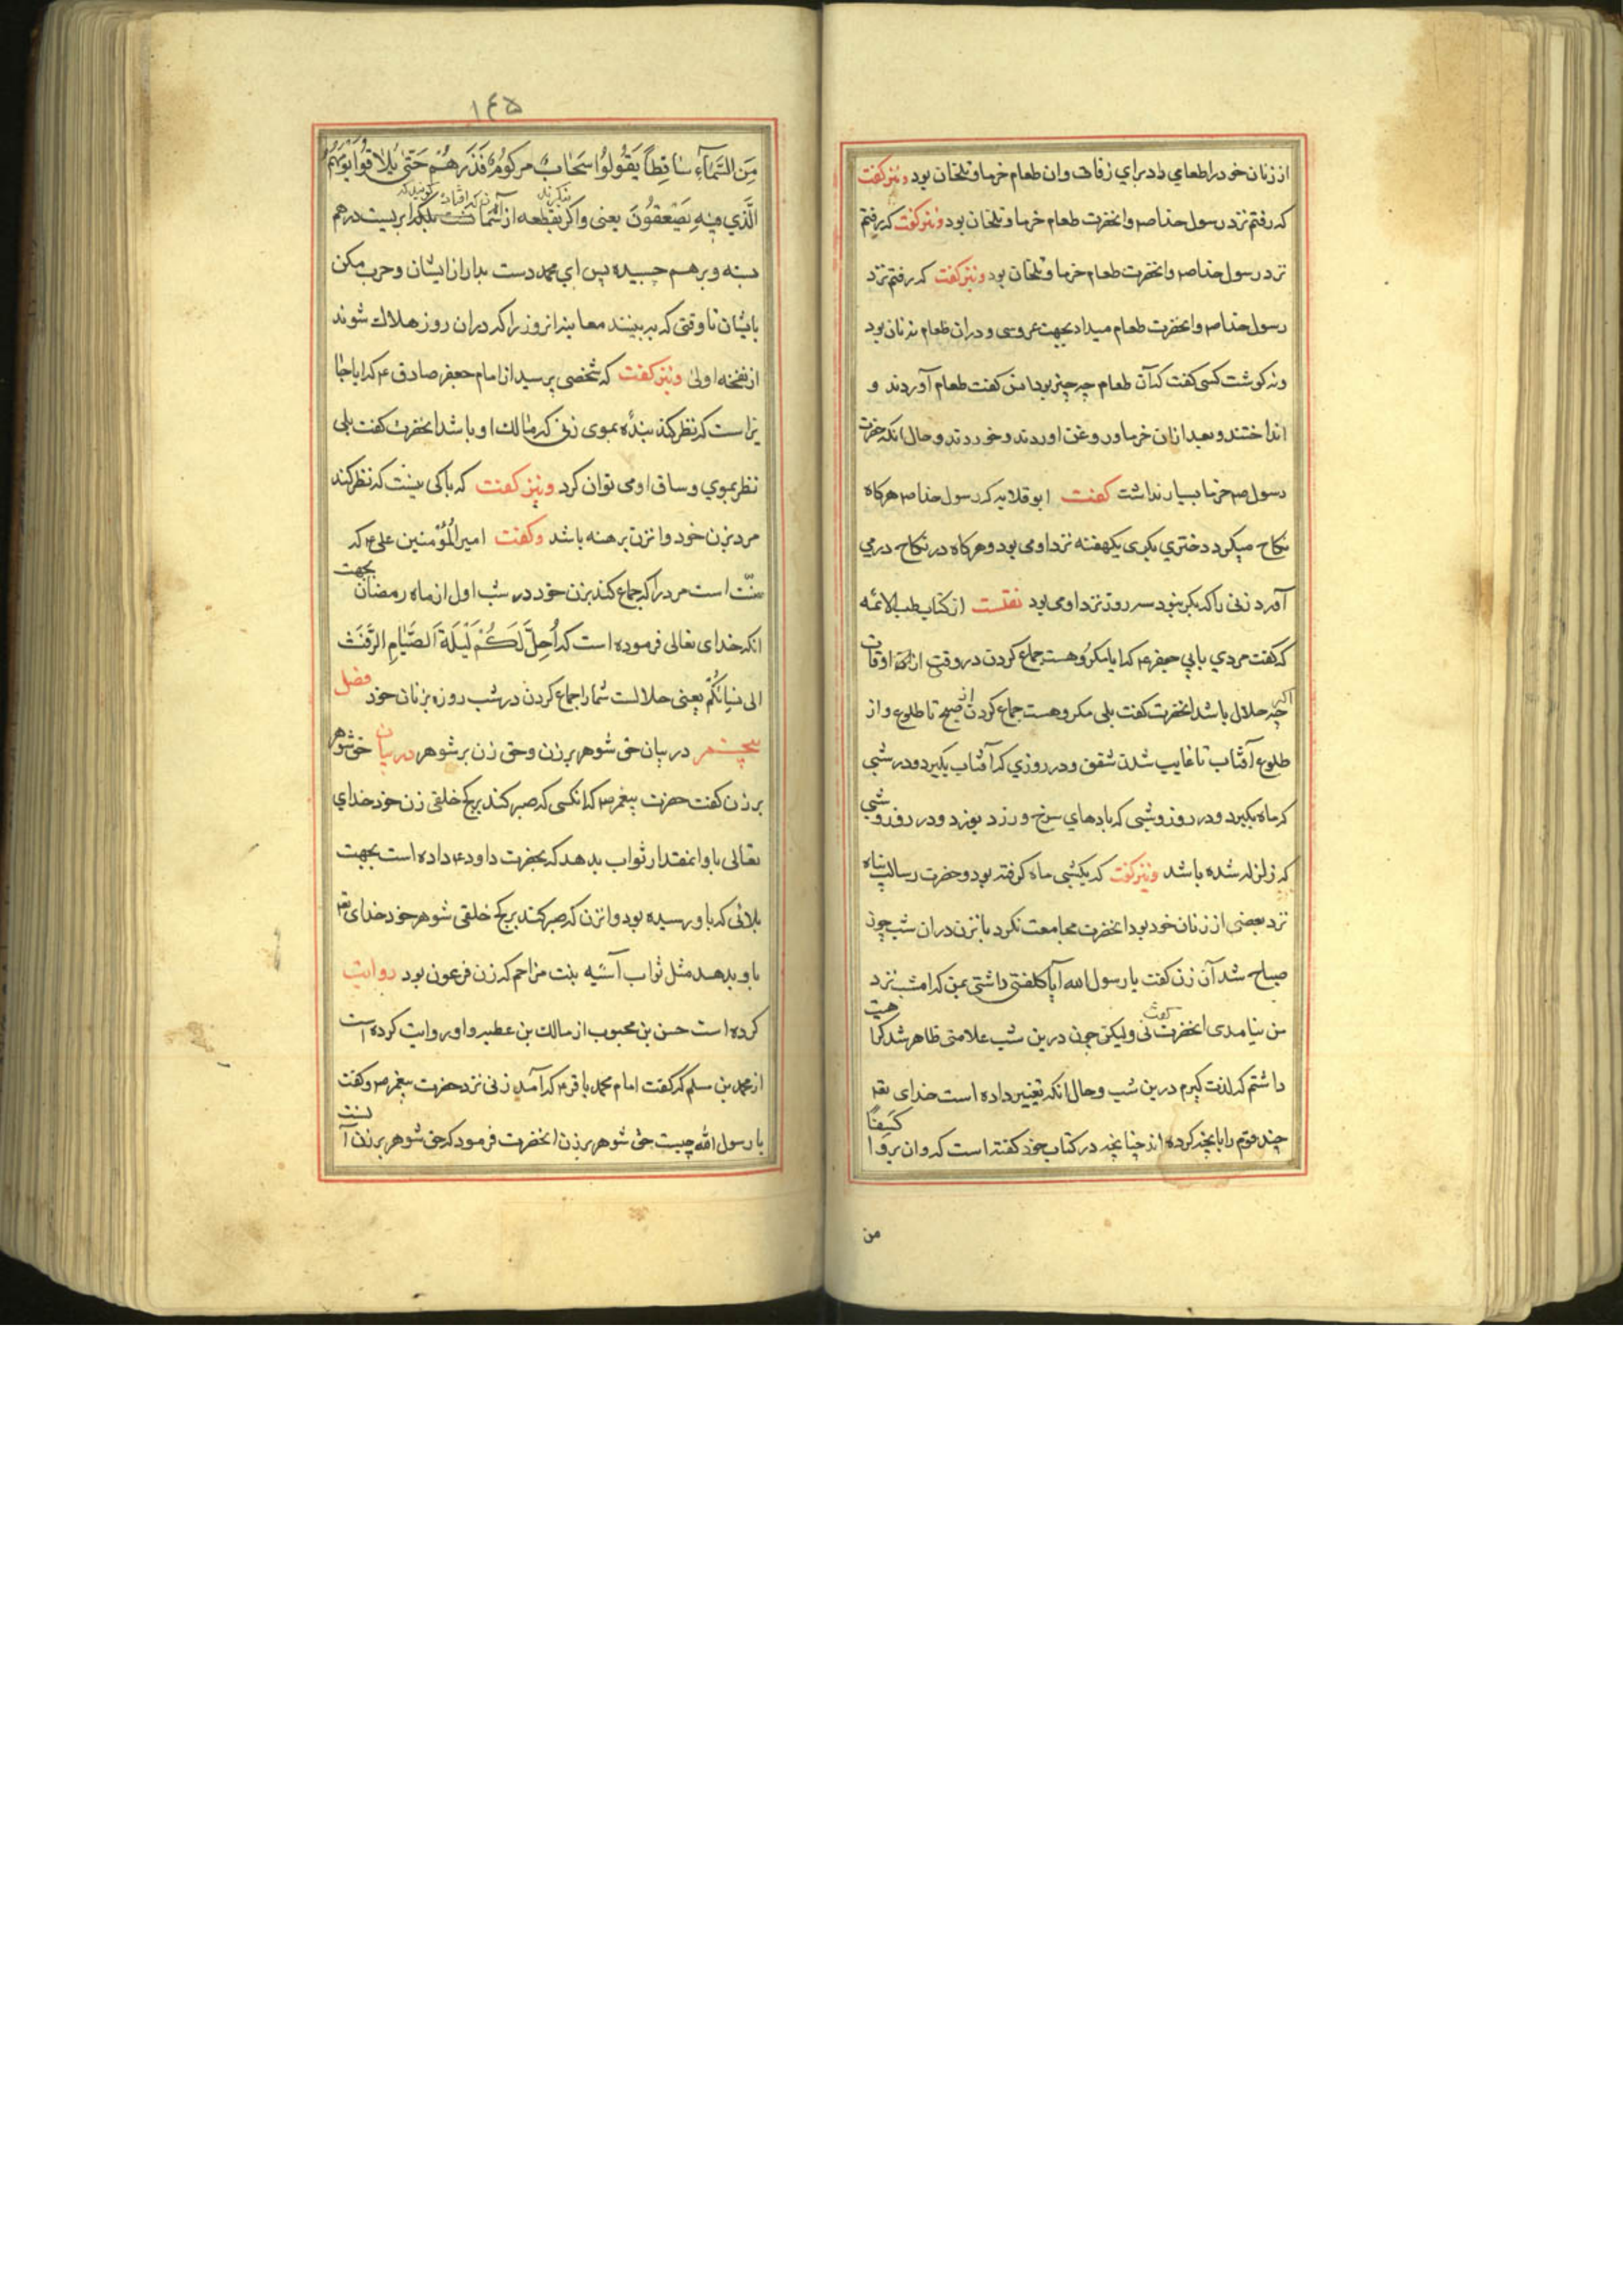 از زنان خود را طعامي داد براي زفاف وان طعام خرما وتلخان بود ونیز کفت
که رفتم نزد رسول خدا صم وانحضرت طعام خرما وتلخان بود ونیز کفت که رفتم
نزد رسول خدا صم وانحضرت طعام خرما وتلخان بود ونیز کفت که رفتم نزد
رسول خدا صم وانحضرت طعام میداد بجهت عروسی ودران طعام نه نان بود
ونه کوشت کسی کفت که آن طعام چه چیز بود انس کفت طعام آوردند و
انداختند وبعد ازان خرما وروغن اوردند وخوردند وحال انکه حضرت
رسول صم خرما بسیار نداشت کفت ابو قلابه که رسول خدا صم هرکاه
نکاح میکرد دختري بکری یکهفته نزد او می بود وهرکاه در نکاح در می
آورد زنی را که بکر نبود سه روز نزد او می بود نقلست از کتاب طب الائمه
که کفت مردي بابي جعفر ع که ایا مکروهست جماع کردن در وقتی از اوقات
اکر چه حلال باشد انحضرت کفت بلی مکروهست جماع کردن از صبح تا طلوع واز
طلوع آفتاب تا غایب شدن شفق ودر روزي که آفتاب بکیرد ودر شبی
که ماه بکیرد ودر روز وشبی که بادهاي سرخ وزرد بوزد ودر روز وشبی
که زلزله شده باشد ونیز کفت که یکشبی ماه کرفته بود وحضرت رسالت پناه
نزد بعضی از زنان خود بود انحضرت مجامعت نکرد بانزن دران شب چون
صباح شد آن زن کفت یا رسول الله آیا کلفتی داشتی بمن که امشب نزد
من نیامدی انحضرت کفت نی ولیکن چون درین شب علامتی ظاهر شد کراهیت
داشتم که لذت کیرم درین شب وحال انکه تغییر داده است خدای تعه
چند قوم را بانچه کرده اند چنانچه در کتاب خود کفته است که وان یروا کسفا
من
۱۴۵
مِنَ السَّمآءِ ساقِطاً یَقُولُوا سَحابٌ مرکومٌ فَذَرهُمْ حَتّی یُلاقُوا یَوْمَهُمُ
الَّذي فیهِ یَصْعَقُونَ یعنی واکر بقطعه از آسمان که افتاد بلکه ابریست درهم
بسته وبرهم چسبیده پس اي محمد دست بدار از ایشان وحرب مکن
بایشان تا وقتی که ببینند معاینه انروز را که دران روز هلاك شوند
از نفخه اولی ونیز کفت که شخصی پرسید از امام جعفر صادق ع که ایا جا
یز است که نظر کند بنده بموی زنی که مالك او باشد انحضرت کفت بلی
نظر بموي وساق او می توان کرد ونیز کفت که باکی نیست که نظر کند
مرد بزن خود وانزن برهنه باشد وکفت امیر المؤمنین علی ع که
سنّت است مرد را که جماع کند بزن خود در شب اول از ماه رمضان بجهت
انکه خدای تعالی فرموده است که اُحِلَّ لَکُمْ لَیْلَةَ الصِّیامِ الرَّفَثُ
الی نسائکُمْ یعنی حلالست شما را جماع کردن در شب روزه بزنان خود فصل
پنجم در بیان حق شوهر بر زن وحق زن بر شوهر در بیان حق شوهر
بر زن کفت حضرت پیغمبر صم که انکسی که صبر کند بر کج خلقی زن خود خداي
تعالی باو انمقدار ثواب بدهد که بحضرت داود ع داده است بجهت
بلائی که باو رسیده بود وانزن که صبر کند بر کج خلقی شوهر خود خدای تعه
باو بدهد مثل ثواب آسیه بنت مزاحم که زن فرعون بود روایت
کرده است حسن بن محبوب از مالك بن عطیه واو روایت کرده است
از محمد بن مسلم که کفت امام محمد باقر ع که آمد زنی نزد حضرت پیغمبر صم وکفت
یا رسول الله چیست حق شوهر بر زن انحضرت فرمود که حق شوهر بر زن آنست